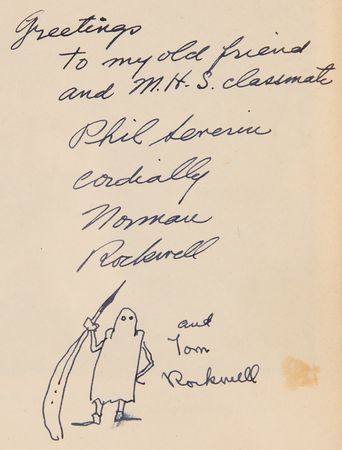 Greetings
to my old friend
and M.H.S. classmate
Phil Severin
cordially
Norman
Rockwell
and
Tom
Rockwell